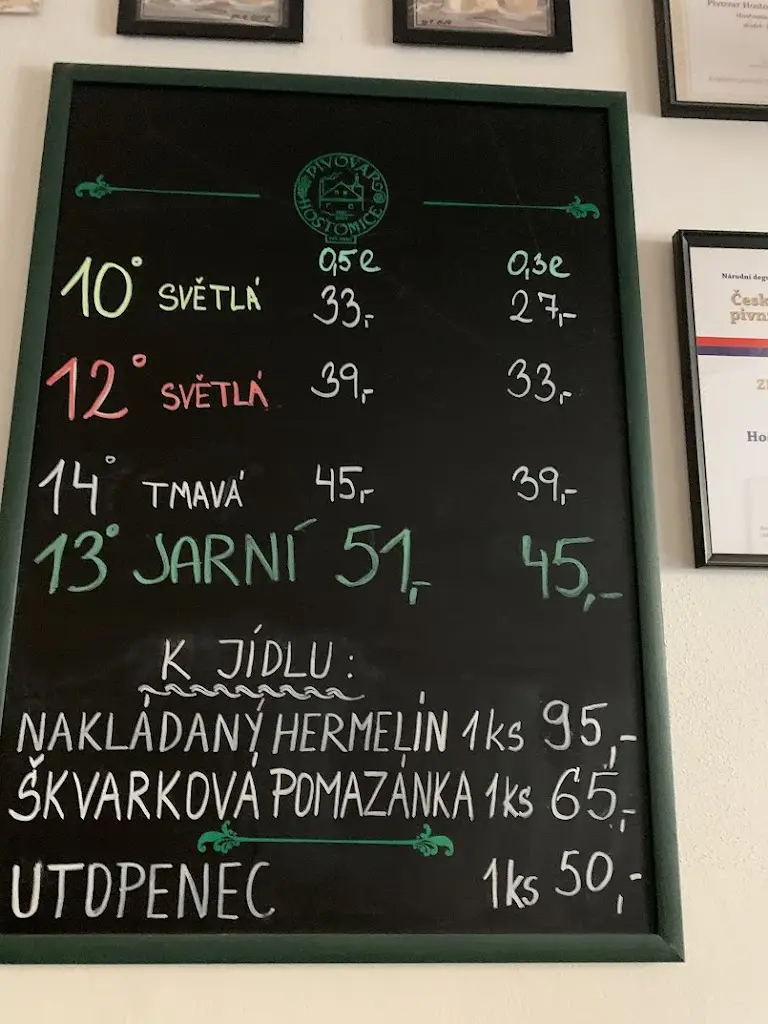 PIVOVAR
HOSTOMICE
0,5l 0,3l
10° SVĚTLÁ 33,- 27,-
12° SVĚTLÁ 39,- 33,-
14° TMAVÁ 45,- 39,-
13° JARNÍ 51,- 45,-
K JÍDLU:
NAKLÁDANÝ HERMELÍN 1ks 95,-
ŠKVARKOVÁ POMAZÁNKA 1ks 65,-
UTOPENEC 1ks 50,-
Pivovar Hosto
Národní degu
Česk
pivní
Ho